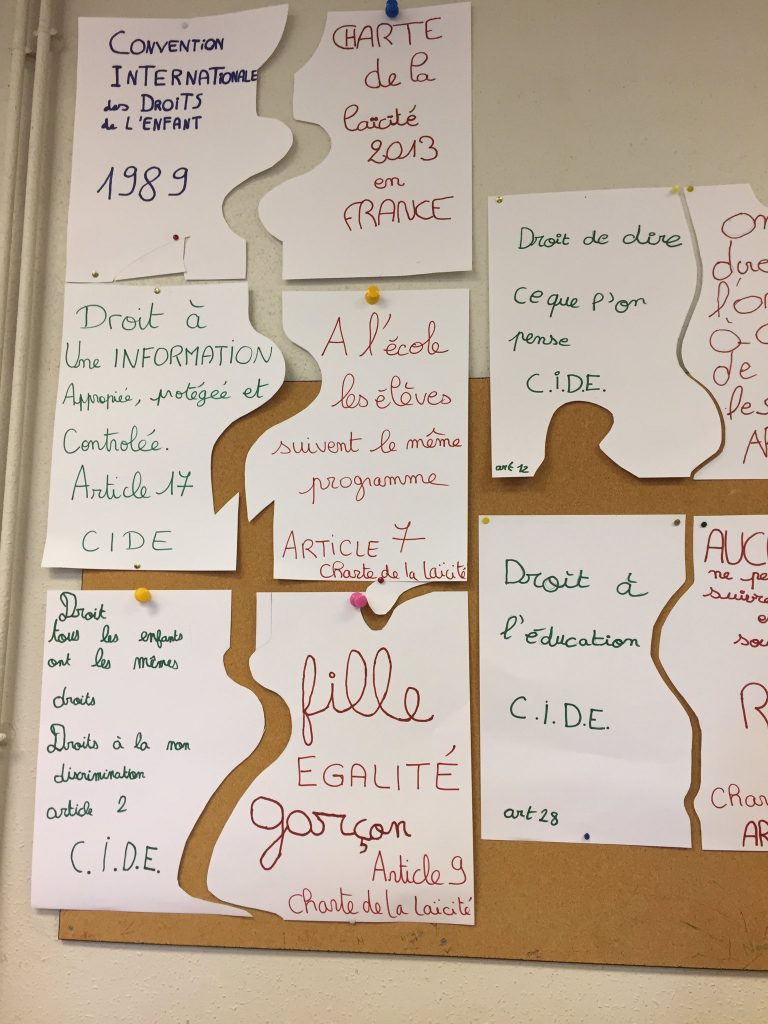 CONVENTION
INTERNATIONALE
des DROITS
de L'ENFANT
1989
CHARTE
de la
laïcité
2013
en
FRANCE
Droit à
Une INFORMATION
Appropiée, protégée et
Controlée.
Article 17
CIDE
A l'école
les élèves
suivent le même
programme
ARTICLE 7
Charte de la laïcité
Droit
tous les enfants
ont les mêmes
droits
Droits à la non
discrimination
article 2
C.I.D.E.
fille
EGALITÉ
garçon
Article 9
Charte de la Laïcité
Droit de dire
ce que l'on
pense
C.I.D.E.
art 12
On
dire
l'o
de
les
Droit à
l'éducation
C.I.D.E.
art 28
AUC
ne pe
suivre
e
sou
R
Char
AR